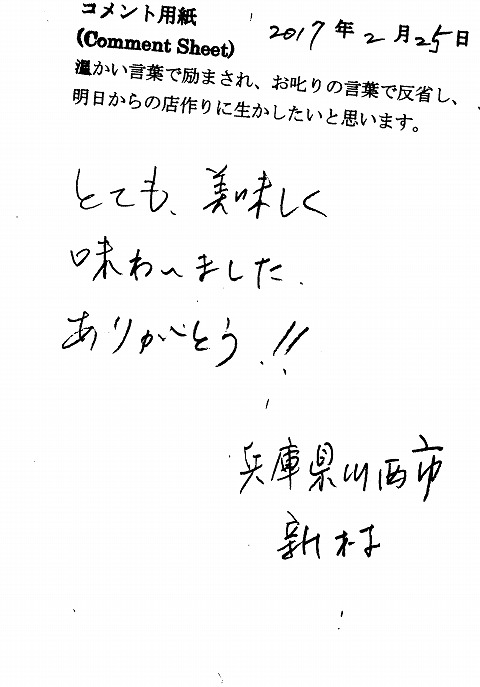 コメント用紙
2017年2月25日
(Comment Sheet)
温かい言葉で励まされ、お叱りの言葉で反省し、
明日からの店作りに生かしたいと思います。
とても、美味しく
味わいました.
ありがとう!!
兵庫県川西市
新村